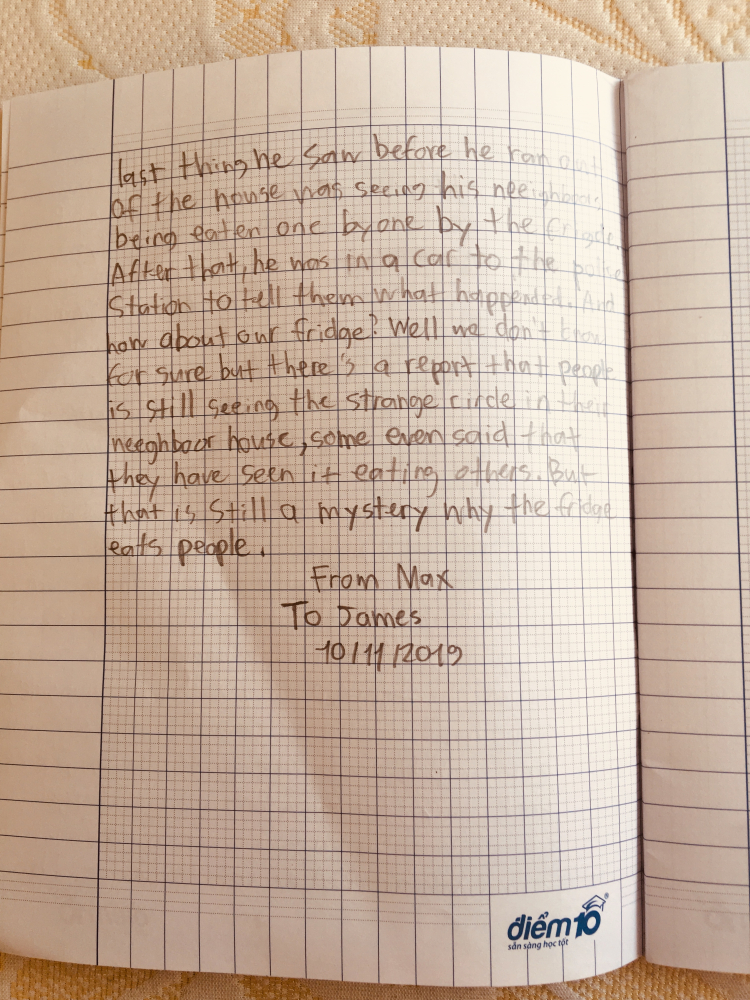 last thing he saw before he ran out
of the house was seeing his neeighboor
being eaten one by one by the fridge.
After that, he was in a car to the police
Station to tell them what happended. And
how about our fridge? Well we don't know
for sure but there's a report that people
is still seeing the strange circle in their
neeghboor house, some even said that
they have seen it eating others. But
that is Still a mystery why the fridge
eats people.
From Max
To James
10/11/2019
điểm10
sẵn sàng học tốt